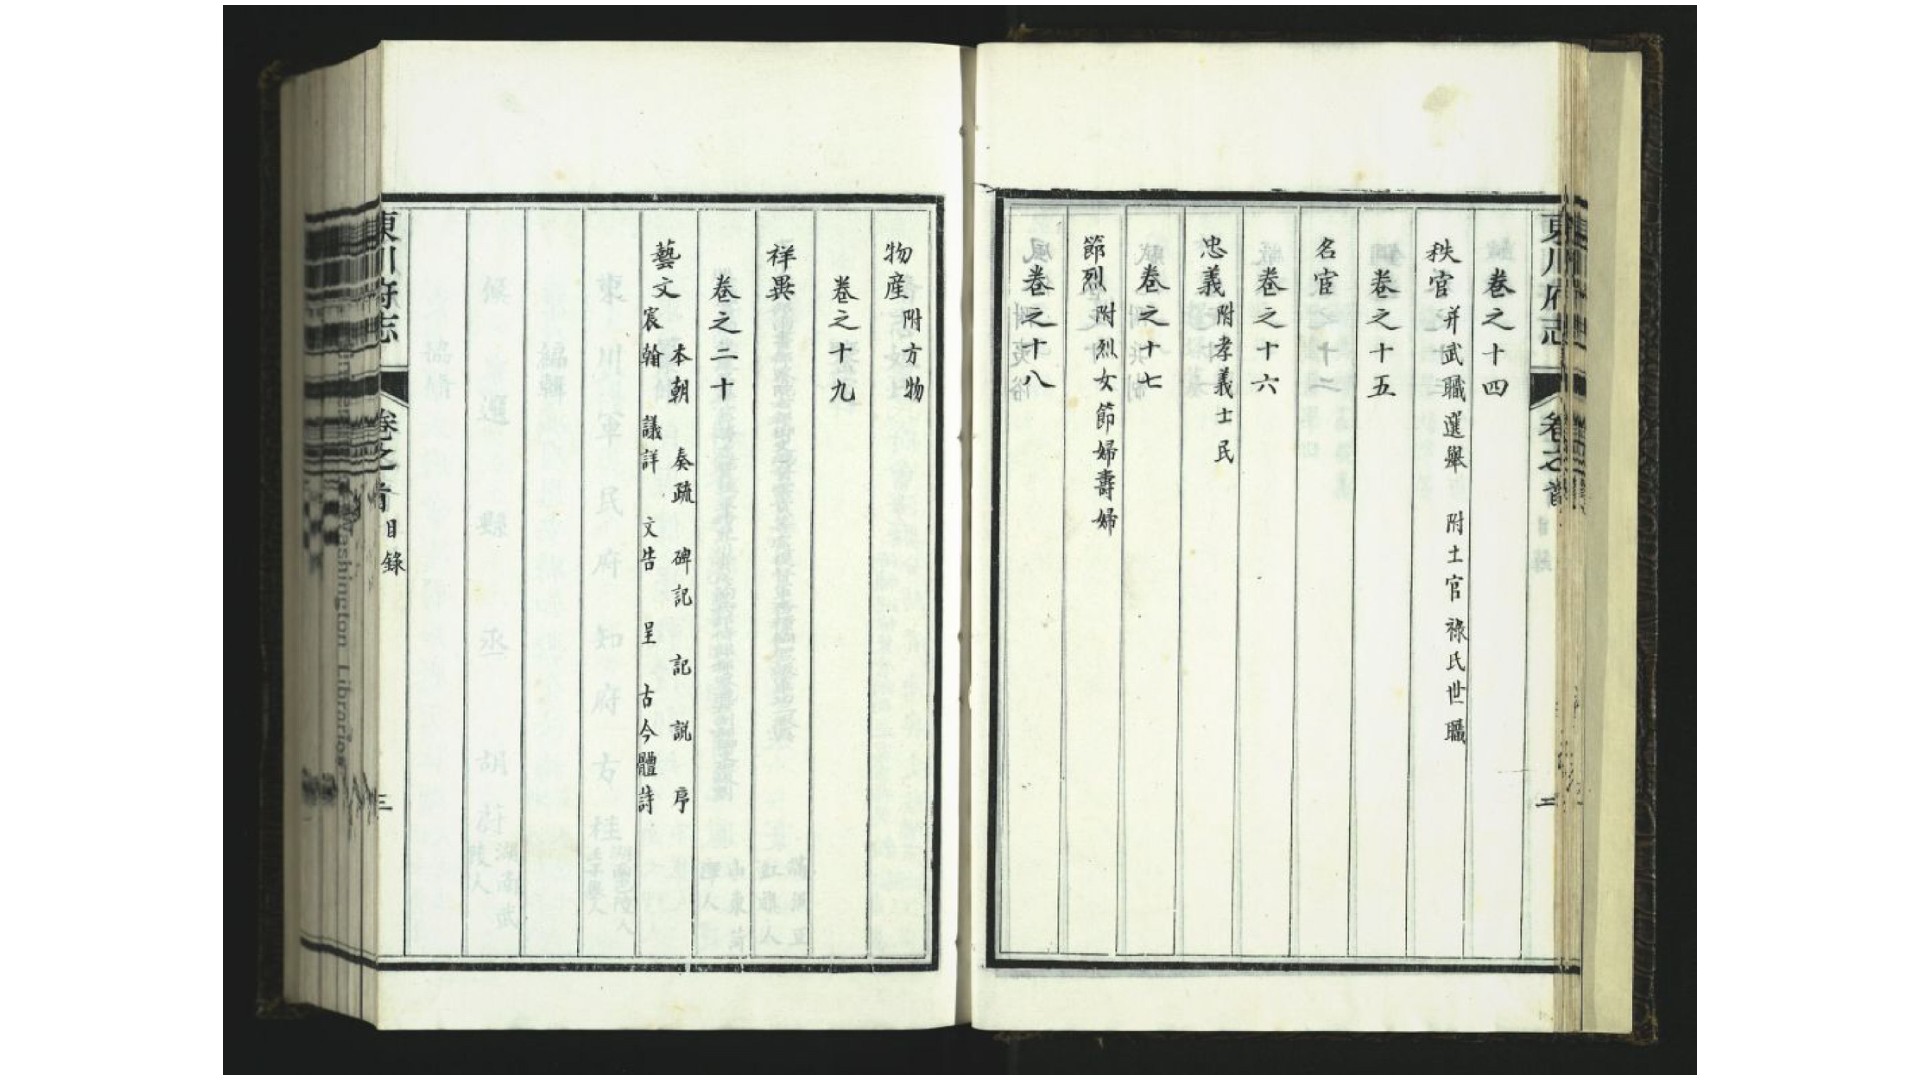 東川府志 卷之首 目錄 二
卷之十四
秩官 并武職選舉 附土官 祿氏世職
卷之十五
名宦
卷之十六
忠義 附孝義士民
卷之十七
節烈 附烈女節婦壽婦
卷之十八
物産 附方物
卷之十九
祥異
卷之二十
藝文 本朝 奏疏 碑記 記 說 序
宸翰 議詳 文告 呈 古今體詩
東川府志 卷之首 目錄 三
Washington Libraries